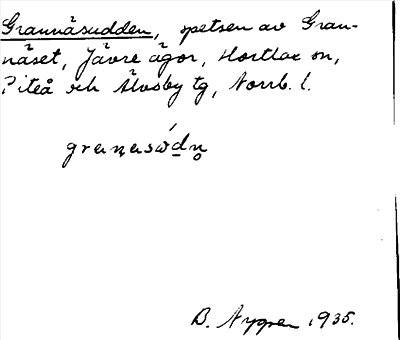 Grannäsudden, spetsen av Gran-
näset, Jävre ägor, Hortlax sn,
Piteå och Älvsby tg, Norrb. l.
granasẃdn̥
B. Nygren 1935.